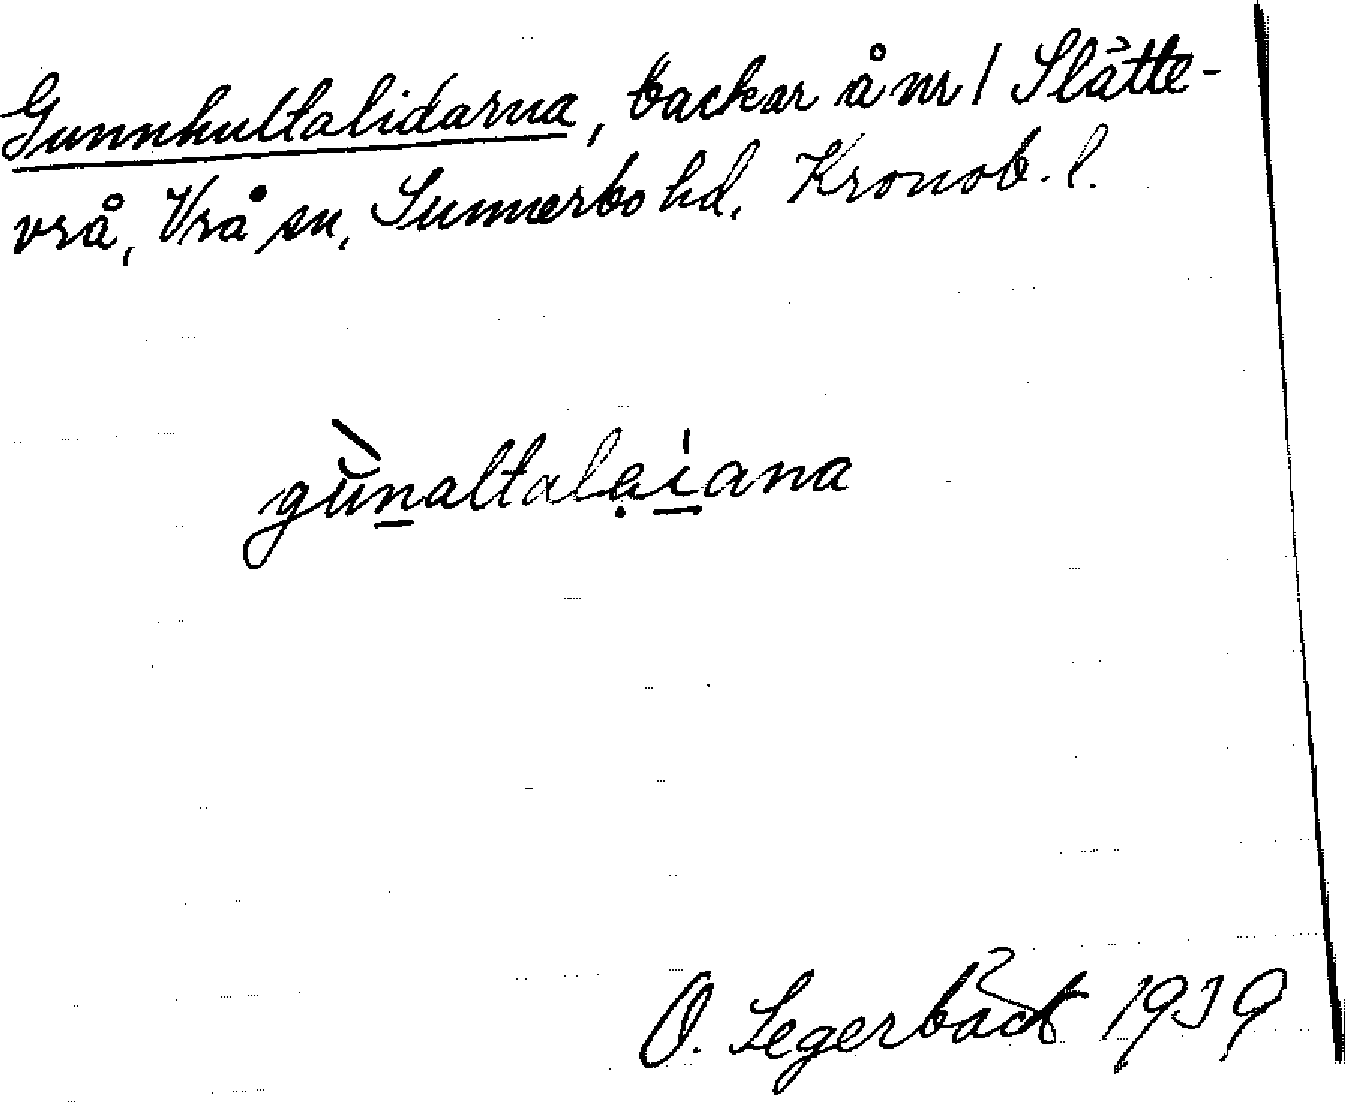 Gunnhultalidarna, backar å nr 1 Slätte-
vrå, Vrå sn, Sunnerbo hd, Kronob. l.
gùnaltalạiana
O. Segerbäck 1939